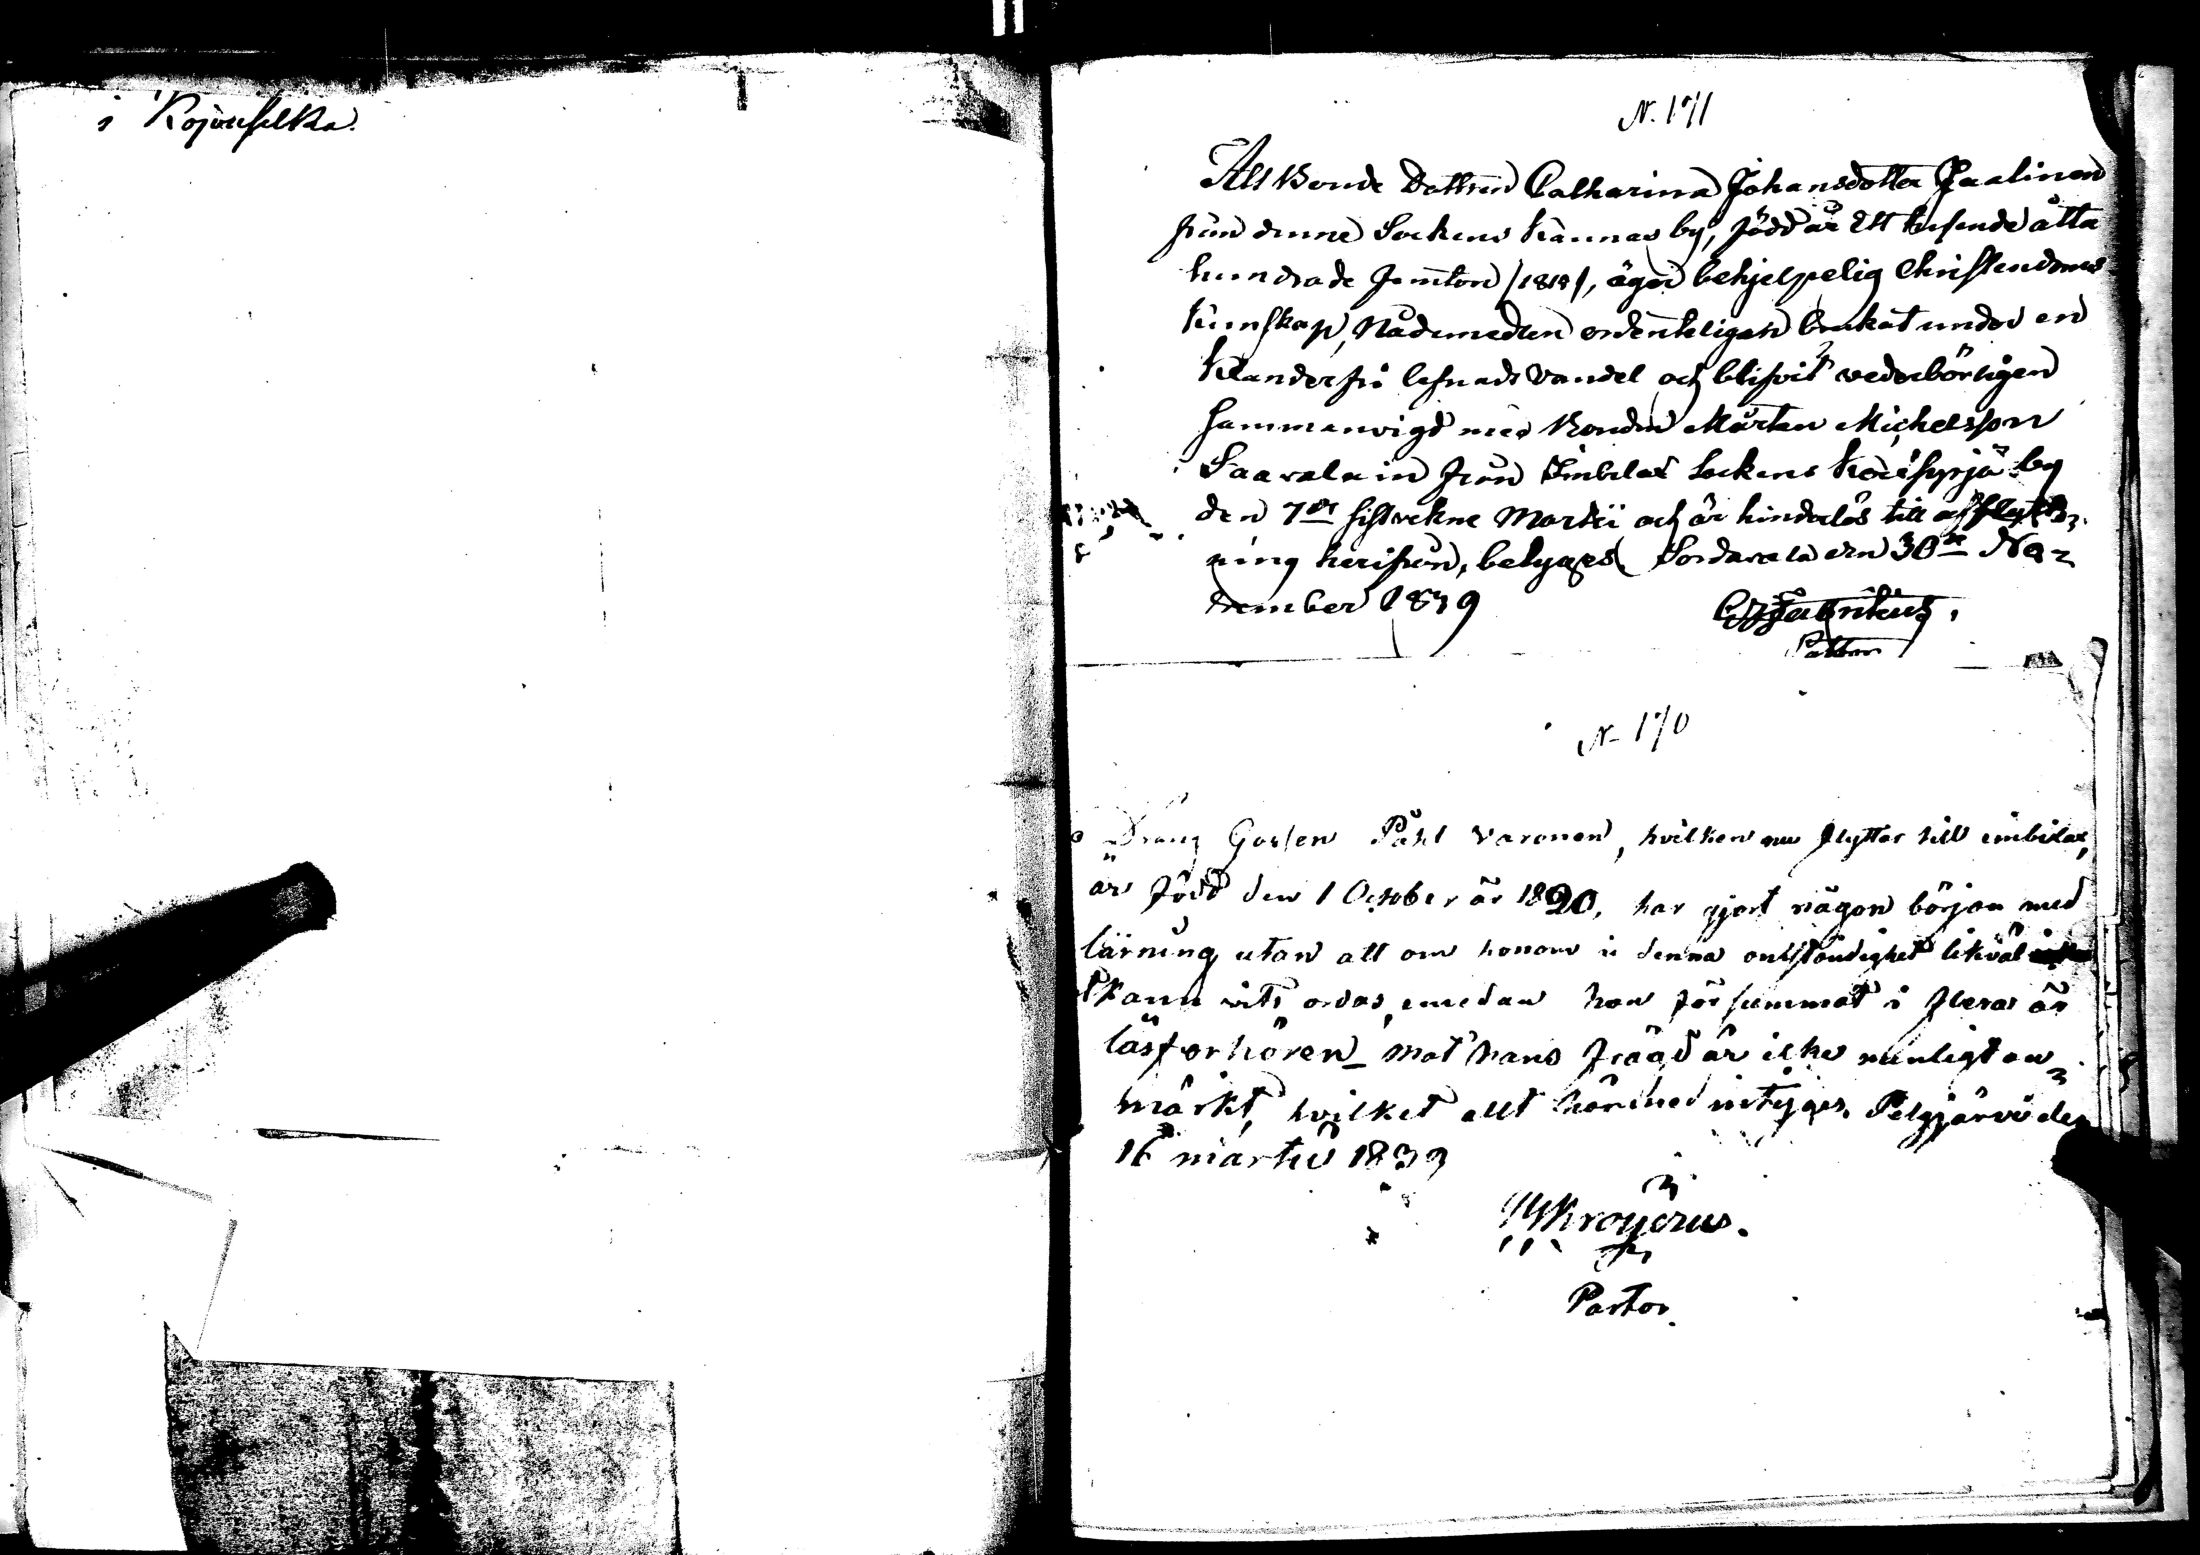 i Kojonselkä.
N. 171
Att Bonde Dottren Catharina Johansdotter Paalinen
från denne Sockens Kannas by, född år Ett tusende åtta
hundrade femton /1815/, äger behjelpelig Christendoms
kunskap, Nådemedlen ordenteligen brukat under en
klanderfri lefnads vandel och blifvit vederbörligen
sammanvigd med Bonden Mårten Michelsson
Saavalain från Imbilax Sockens by
den 7de sistvekne Martii och är hinderlös till afflytt-
ning herifrån, betygas. Sordavala den 30de No-
vember 1839
Pastor
N. 170
Dräng Gossen Påhl Varonen, hvilken nu flyttar till imbilax,
är född den 1 October år 1820, har gjort någon början med
lärning utan att om honom i denna omständighet likväl
kann vits ordas, emedan han försummat i fleras år
läsförhören - mot hans fräjd är icke menligt an-
märkt, hvilket allt härmed intygas. Pelgjärvi den
16 martii 1839
Pastor.